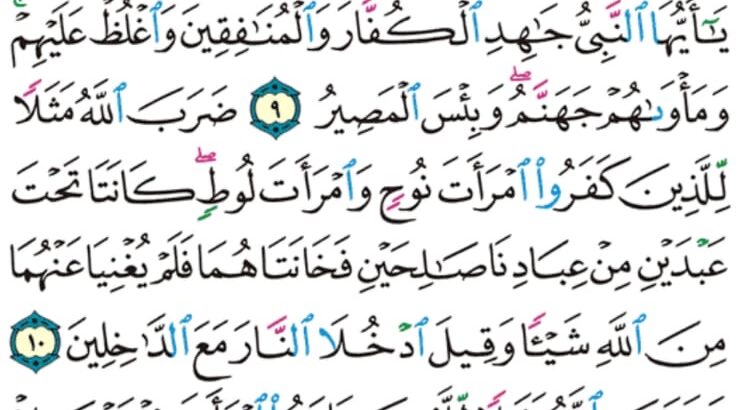 يَـٰٓأَيُّهَا ٱلنَّبِىُّ جَـٰهِدِ ٱلْكُفَّارَ وَٱلْمُنَـٰفِقِينَ وَٱغْلُظْ عَلَيْهِمْ ۚ
وَمَأْوَىٰهُمْ جَهَنَّمُ ۖ وَبِئْسَ ٱلْمَصِيرُ ٩ ضَرَبَ ٱللَّهُ مَثَلًا
لِّلَّذِينَ كَفَرُوا۟ ٱمْرَأَتَ نُوحٍ وَٱمْرَأَتَ لُوطٍ ۖ كَانَتَا تَحْتَ
عَبْدَيْنِ مِنْ عِبَادِنَا صَـٰلِحَيْنِ فَخَانَتَاهُمَا فَلَمْ يُغْنِيَا عَنْهُمَا
مِنَ ٱللَّهِ شَيْـًٔا وَقِيلَ ٱدْخُلَا ٱلنَّارَ مَعَ ٱلدَّٰخِلِينَ ١٠